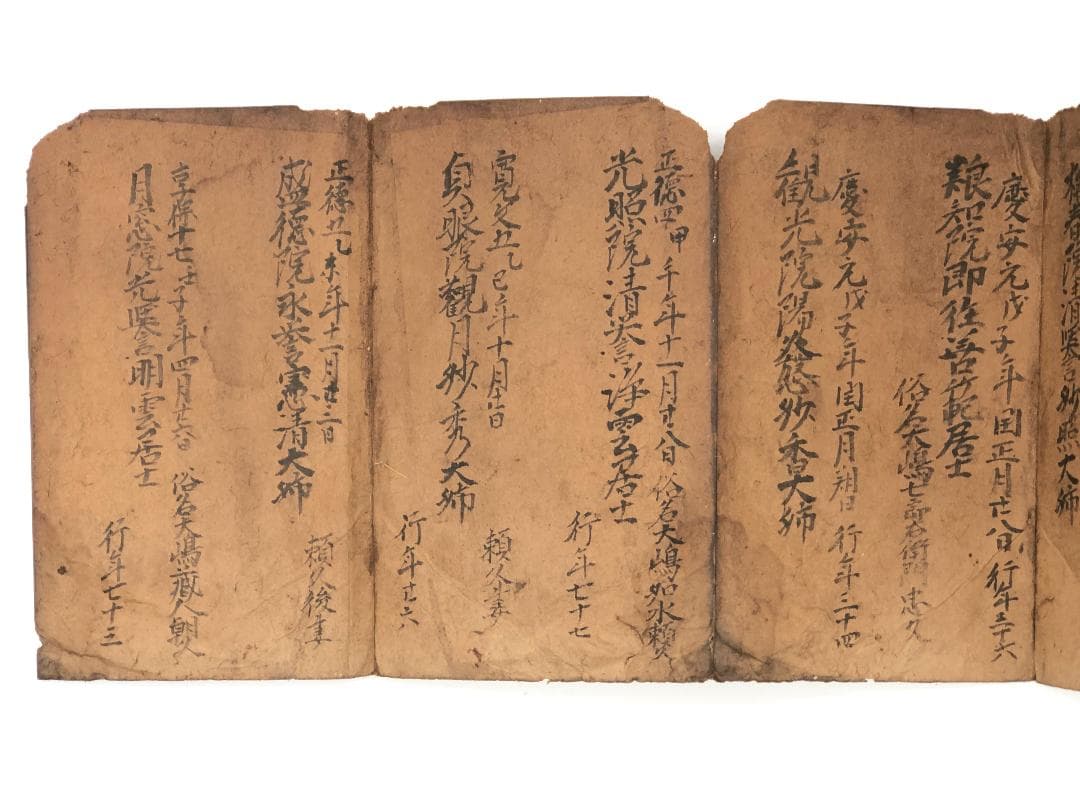 慶安元戊子年閏正月廿八日 行年三十六
粮知院即往浯範居士
俗名大嶋七郎右衛門忠久
慶安元戊子年閏正月朔日 行年三十四
観光院陽慈妙香大姉
正徳四甲午年十一月廿八日 俗名大嶋如水頼久
光照院清誉浄雲居士
行年七十七
寛文五乙巳年十月廿六日
頼久妻
貞眼院觀月妙秀大姉
行年廿六
正徳五乙未年十一月廿二日
頼久後妻
盛徳院永誉憲清大姉
享保十七壬子年四月廿六日 俗名大嶋蔵人朝久
月窓院光誉明雲居士
行年七十三